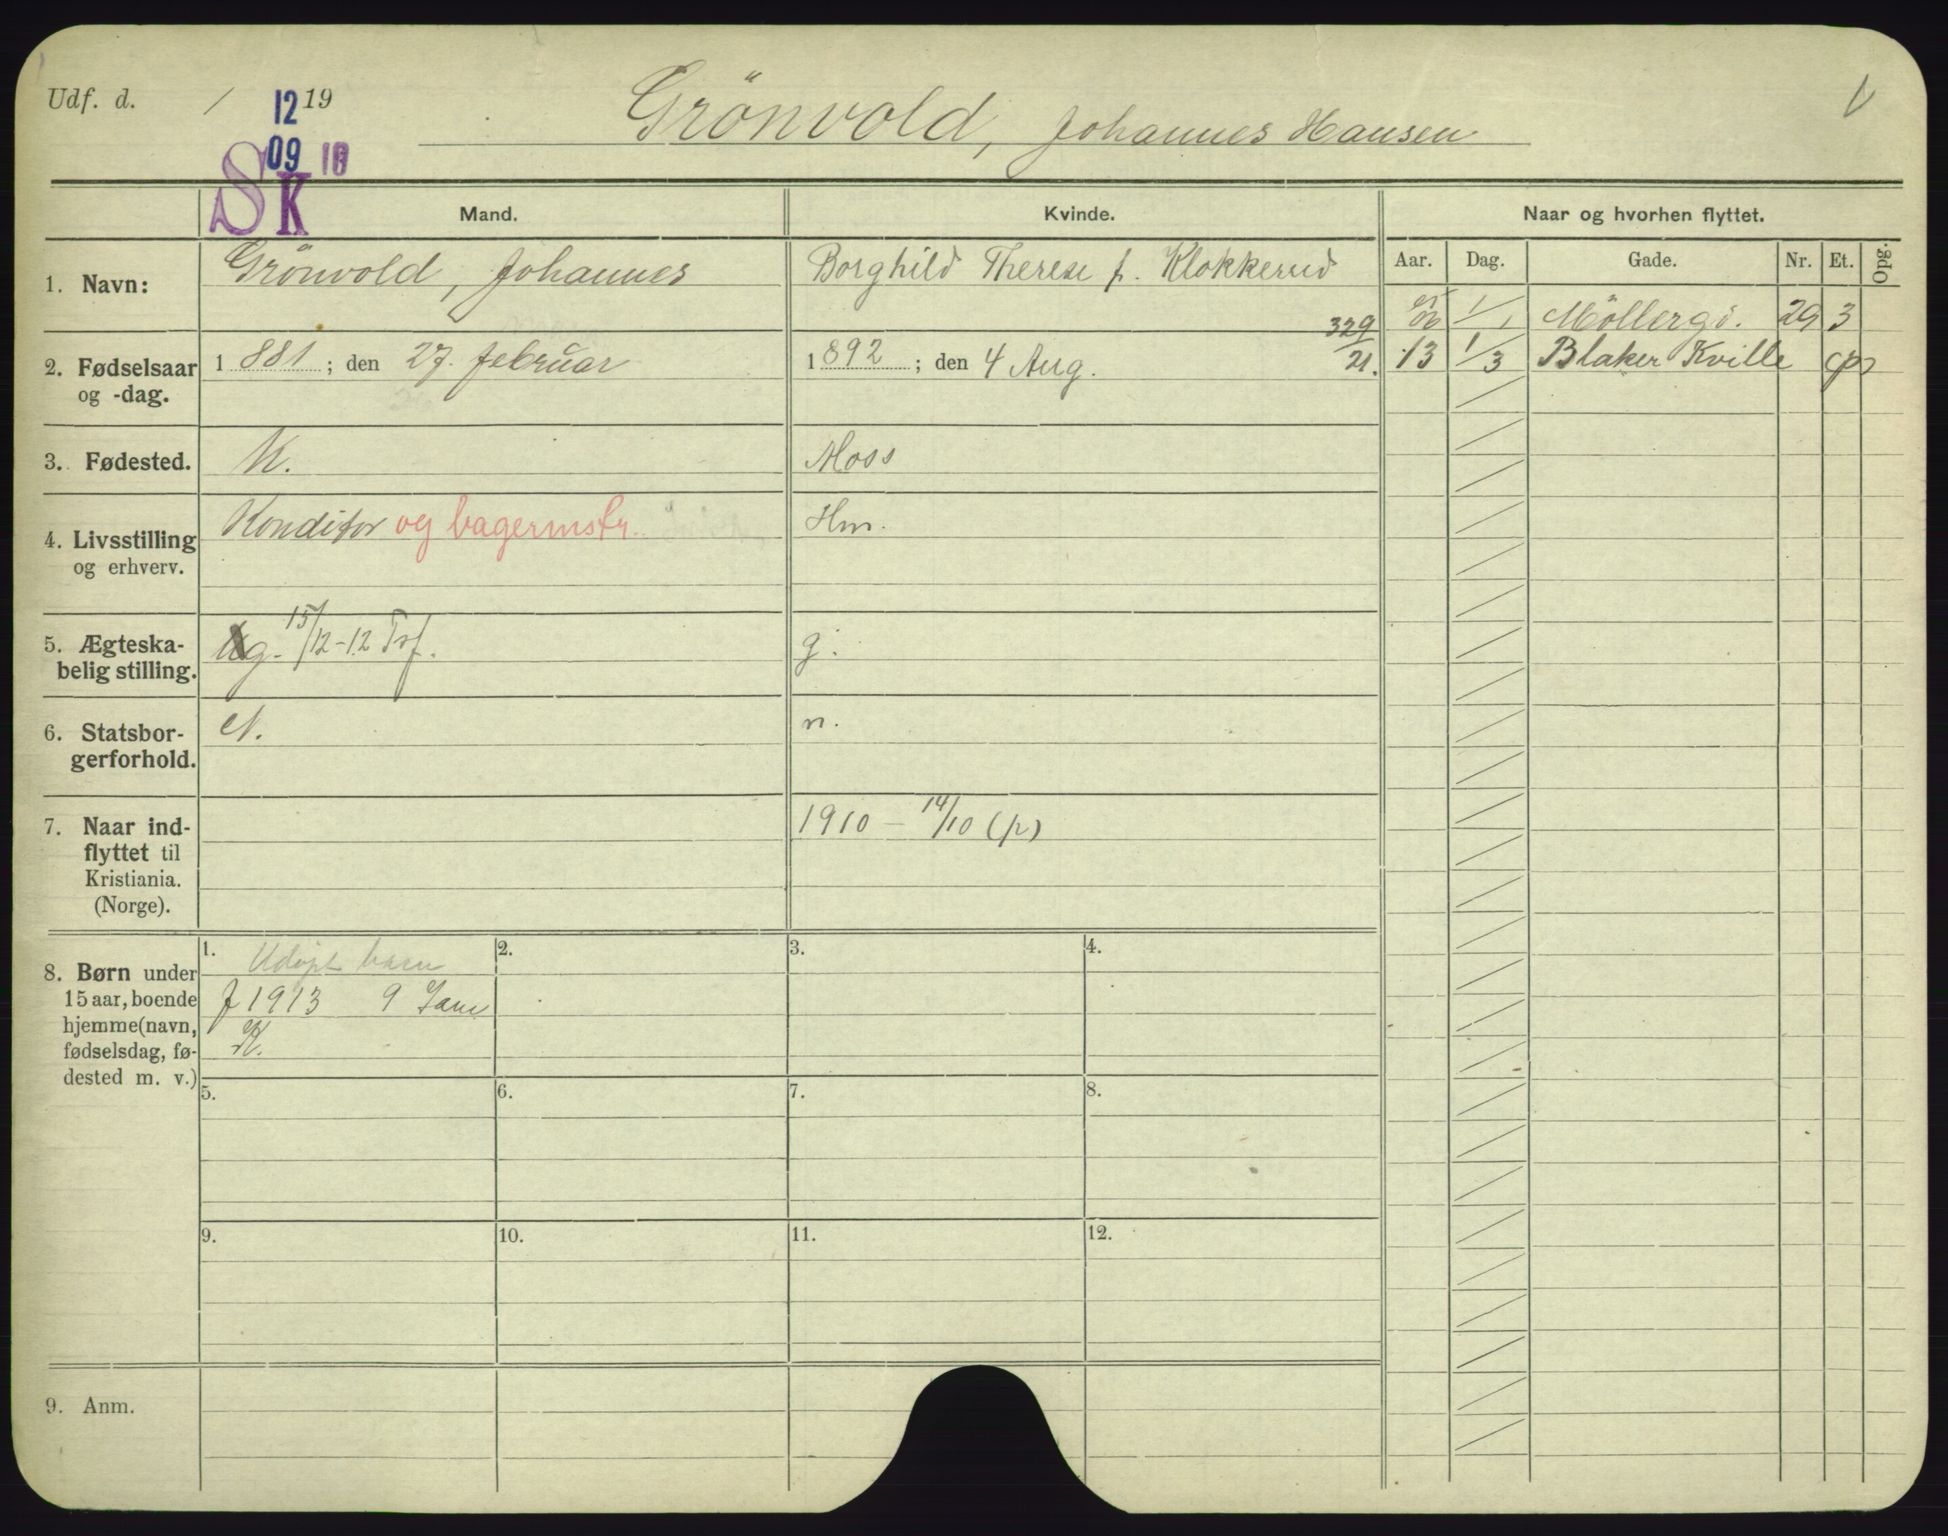 Udf. d. / 12 19
09 10
SK
Grönvold, Johannes Hansen
Mand.
Kvinde.
Naar og hvorhen flyttet.
Aar. Dag. Gade. Nr. Et. Opg.
1. Navn:
Grönvold, Johannes
Borghild Therese f. Klokkerud
329
21.
06 1/1 Möllergd. 29 3
13 1/3 Blaker Kville
2. Fødselsaar
og -dag.
1881; den 27. februar
1892; den 4 Aug.
3. Fødested.
K.
Moss
4. Livsstilling
og erhverv.
Konditor og bagermstr.
Hm.
5. Ægteska-
belig stilling.
g. 15/12-12 Trf.
g.
6. Statsbor-
gerforhold.
N.
n.
7. Naar ind-
flyttet til
Kristiania.
(Norge).
1910 - 14/10 (p)
8. Børn under
15 aar, boende
hjemme (navn,
fødselsdag, fø-
dested m. v.)
1. Udöpt barn
f 1913 9 Jan
K.
2.
3.
4.
5.
6.
7.
8.
9.
10.
11.
12.
9. Anm.